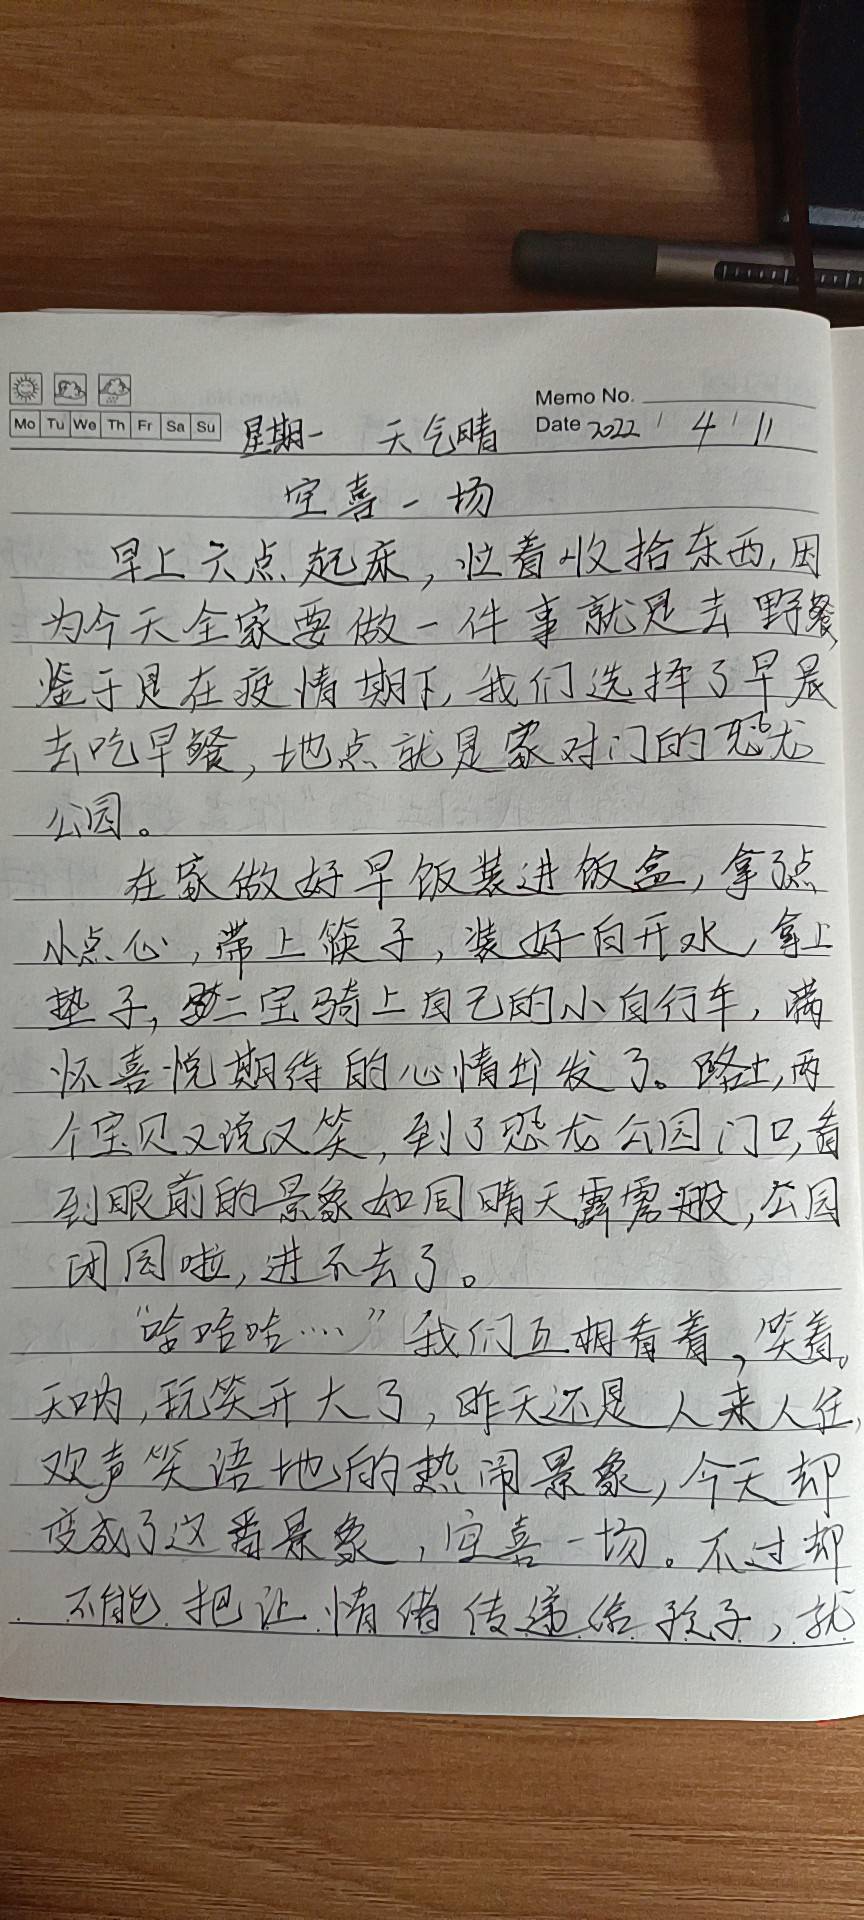 Memo No.
Mo Tu We Th Fr Sa Su 星期一 天气晴 Date 2022 / 4 / 11
空喜一场
早上六点起床，忙着收拾东西，因
为今天全家要做一件事就是去野餐，
鉴于是在疫情期下，我们选择了早晨
去吃早餐，地点就是家对门的恐龙
公园。
在家做好早饭装进饭盒，拿了点
小点心，带上筷子，装好白开水，拿上
垫子，二宝骑上自己的小自行车，满
怀喜悦期待的心情出发了。路上，两
个宝贝又说又笑，到了恐龙公园门口，看
到眼前的景象如同晴天霹雳般，公园
闭园啦，进不去了。
“哈哈哈····”我们互相看着，笑着。
天呐，玩笑开大了，昨天还是人来人往，
欢声笑语地的热闹景象，今天却
变成了这番景象，空喜一场。不过却
不能把让情绪传递给孩子，就